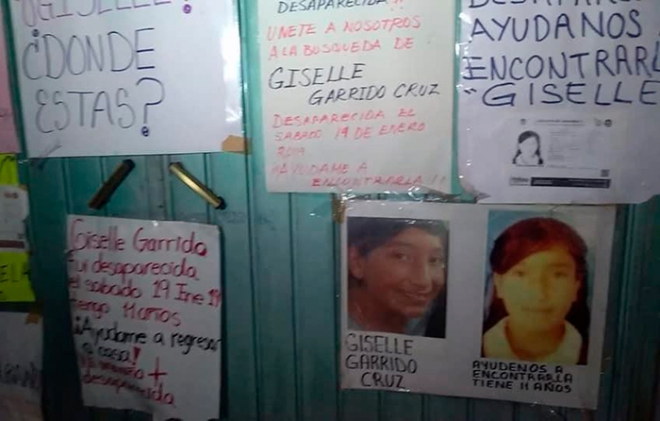 ¡GISELLE!
¿DONDE
ESTAS?
DESAPARECIDA!!
UNETE A NOSOTROS
A LA BUSQUEDA DE
GISELLE
GARRIDO CRUZ
DESAPARECIDA EL
SABADO 19 DE ENERO
AYUDAME A
ENCONTRARLA!!
AYUDANOS
ENCONTRARL
"GISELLE
Giselle Garrido
Fui desaparecida
el sabado 19 Ene 19
tengo 11 años
¡Ayudame a regresar
a casa!
desaparecida
GISELLE
GARRIDO
CRUZ
AYUDENOS A
ENCONTRARLA
TIENE 11 AÑOS